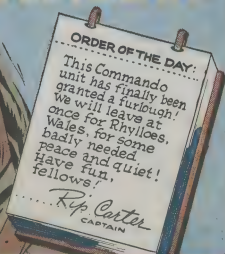 ORDER OF THE DAY:
This Commando
unit has finally been
granted a furlough!
We will leave at
once for Rhylloes,
Wales, for some
badly needed
peace and quiet!
Have fun,
fellows!
Rip Carter
CAPTAIN